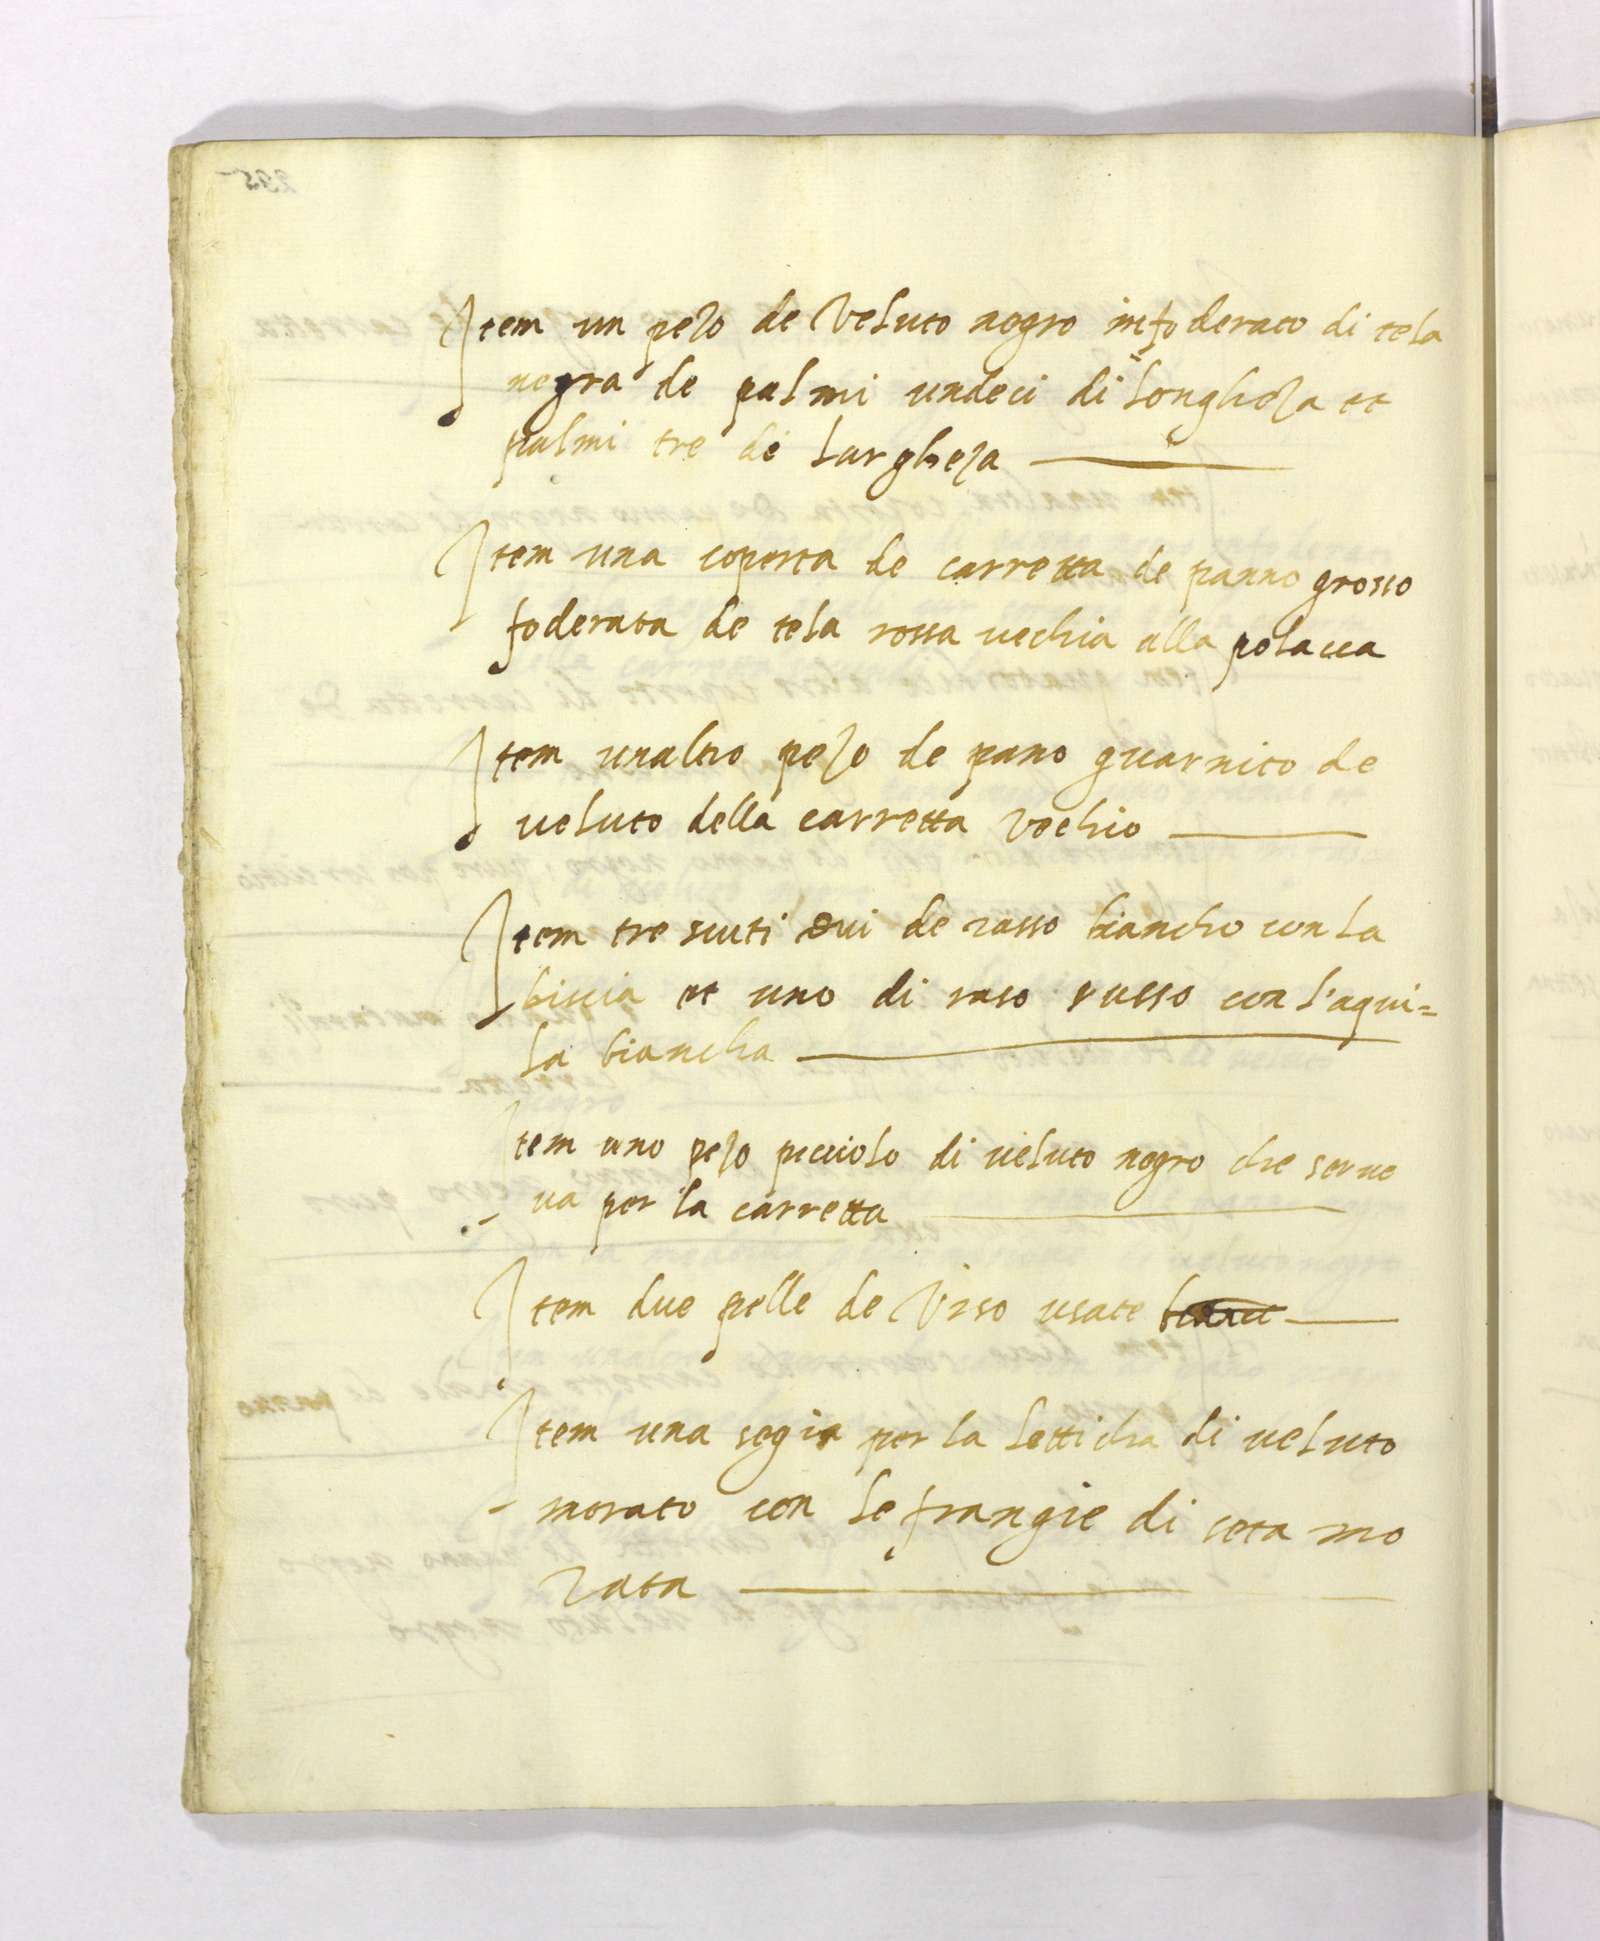 Item un pezo de Veluto negro infoderato di tela
negra de palmi undeci di longheza et
palmi tre de largheza
Item una coperta de carretta de panno grosso
foderata de tela rossa uechia alla polacca
Item unaltro pezo de pano guarnito de
ueluto della carretta Vechio
Item tre scuti dui de rasso biancho con la
biscia et uno di raso russo con l'aqui=
la biancha
Item uno pezo picciolo di ueluto negro che serue
ua per la carretta
Item due pelle de Vrso usate
Item una segia per la letticha di ueluto
morato con le frangie di seta mo
rata